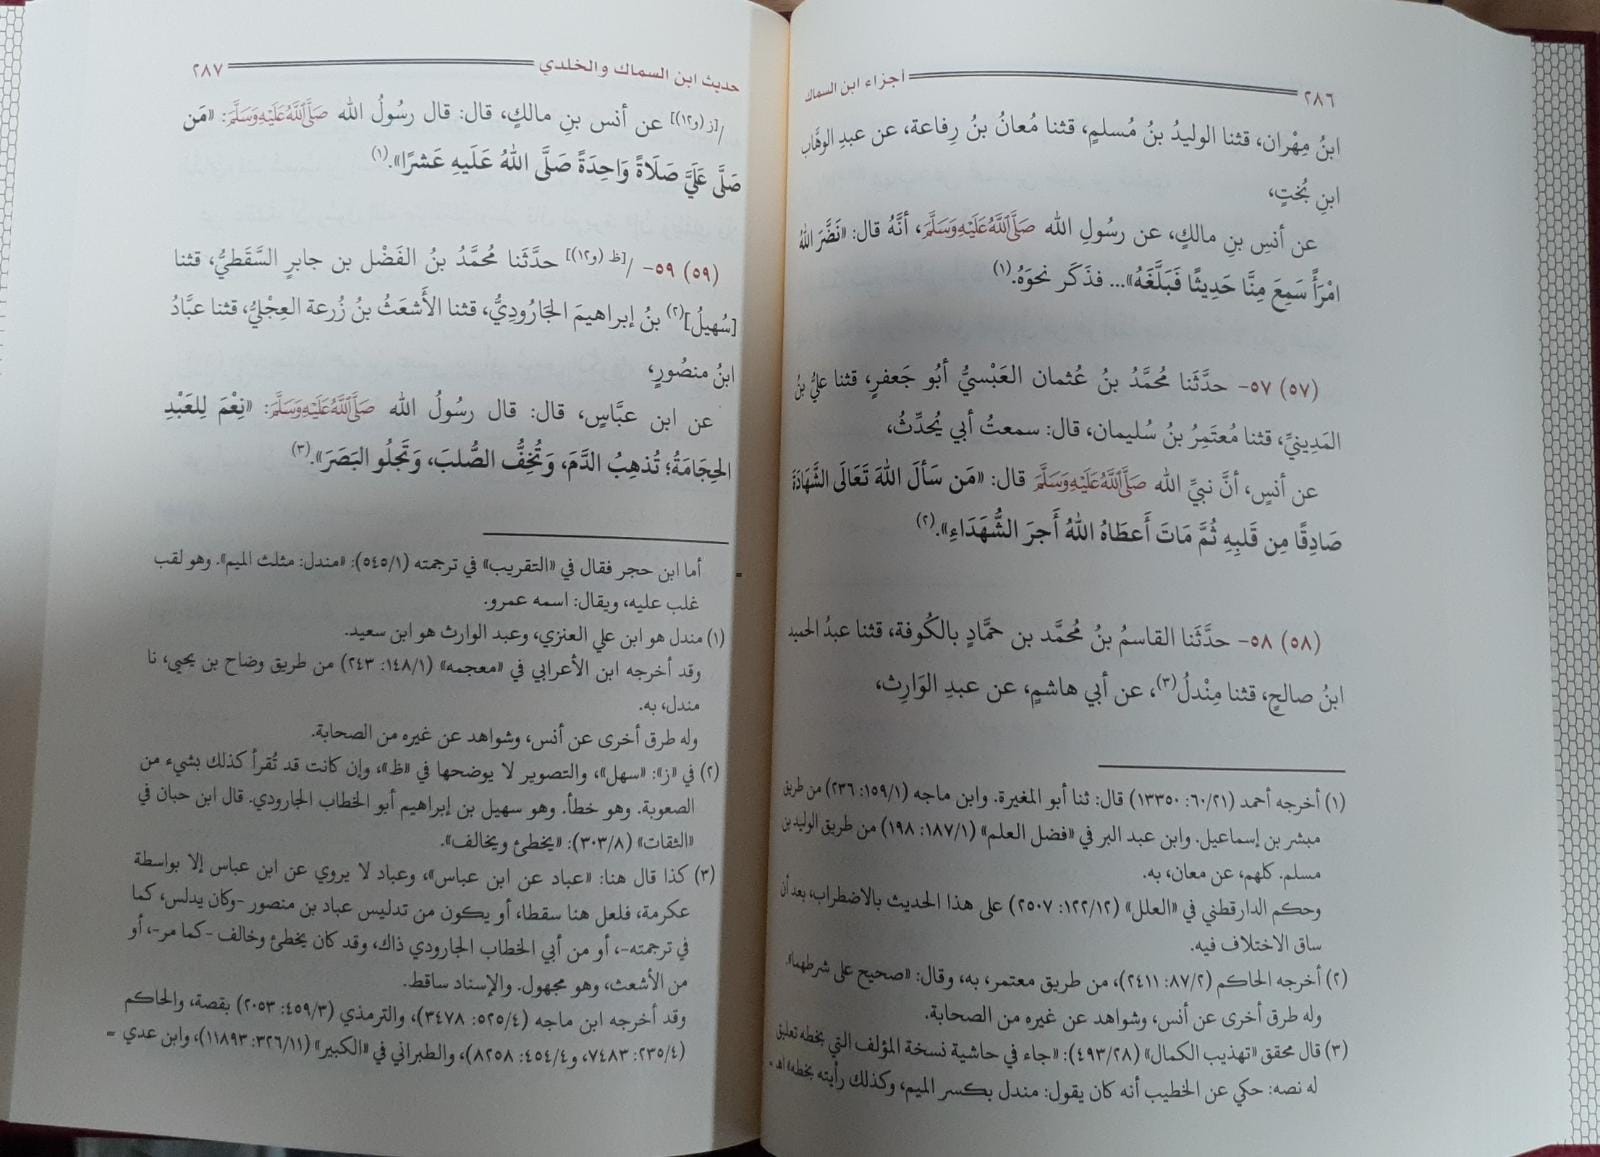 ٢٨٦ أجزاء ابن السماك
ابنُ مِهْران، قثنا الوليدُ بنُ مُسلمٍ، قثنا مُعانُ بنُ رِفاعة، عن عبدِ الوهَّاب
ابنِ بُختٍ،
عن أنسِ بنِ مالكٍ، عن رسُولِ الله صَلَّى اللَّهُ عَلَيْهِ وَسَلَّمَ، أنَّهُ قال: «نَضَّرَ اللهُ
امْرَأً سَمِعَ مِنَّا حَدِيثًا فَبَلَّغَهُ»... فذَكَر نحوَهُ.(١)
(٥٧) ٥٧- حدَّثَنا مُحمَّدُ بنُ عُثمان العَبْسيُّ أبُو جَعفرٍ، قثنا عليُّ بنُ
المَدِينيِّ، قثنا مُعتَمِرُ بنُ سُليمان، قال: سمعتُ أبي يُحدِّثُ،
عن أنسٍ، أنَّ نبيِّ الله صَلَّى اللَّهُ عَلَيْهِ وَسَلَّمَ قال: «مَن سَألَ اللهَ تَعَالَى الشَّهَادَةَ
صَادِقًا مِن قَلبِهِ ثُمَّ مَاتَ أَعطَاهُ اللهُ أَجرَ الشُّهَدَاءِ».(٢)
(٥٨) ٥٨- حدَّثَنا القاسمُ بنُ مُحمَّد بن حمَّادٍ بالكُوفة، قثنا عبدُ الحميد
ابنُ صالحٍ، قثنا مِنْدلُ(٣)، عن أبي هاشمٍ، عن عبدِ الوَارِث،
(١) أخرجه أحمد (٦٠/٢١: ١٣٣٥٠) قال: ثنا أبو المغيرة. وابن ماجه (١٥٩/١: ٢٣٦) من طريق
مبشر بن إسماعيل. وابن عبد البر في «فضل العلم» (١٨٧/١: ١٩٨) من طريق الوليد بن
مسلم. كلهم، عن معان، به.
وحكم الدارقطني في «العلل» (١٢٢/١٢: ٢٥٠٧) على هذا الحديث بالاضطراب، بعد أن
ساق الاختلاف فيه.
(٢) أخرجه الحاكم (٨٧/٢: ٢٤١١)، من طريق معتمر، به، وقال: «صحيح على شرطهما».
وله طرق أخرى عن أنس، وشواهد عن غيره من الصحابة.
(٣) قال محقق «تهذيب الكمال» (٤٩٣/٢٨): «جاء في حاشية نسخة المؤلف التي بخطه تعليق
له نصه: حكي عن الخطيب أنه كان يقول: مندل بكسر الميم، وكذلك رأيته بخطه» اهـ =
حديث ابن السماك والخلدي ٢٨٧
/[ز (و١٢)] عن أنس بنِ مالكٍ، قال: قال رسُولُ الله صَلَّى اللَّهُ عَلَيْهِ وَسَلَّمَ: «مَن
صَلَّى عَلَيَّ صَلَاةً وَاحِدَةً صَلَّى اللهُ عَلَيهِ عَشرًا».(١)
(٥٩) ٥٩- /[ظ (و١٢)] حدَّثَنا مُحمَّدُ بنُ الفَضْل بن جابرٍ السَّقَطيُّ، قثنا
[سُهيلُ](٢) بنُ إبراهيمَ الجَارُودِيُّ، قثنا الأَشعَثُ بنُ زُرعة العِجْليُّ، قثنا عبَّادُ
ابنُ منصُورٍ،
عن ابن عبَّاسٍ، قال: قال رسُولُ الله صَلَّى اللَّهُ عَلَيْهِ وَسَلَّمَ: «نِعْمَ لِلعَبْدِ
الحِجَامَةُ؛ تُذهِبُ الدَّمَ، وَتُخِفُّ الصُّلبَ، وَتَجلُو البَصَرَ».(٣)
= أما ابن حجر فقال في «التقريب» في ترجمته (٥٤٥/١): «مندل: مثلث الميم». وهو لقب
غلب عليه، ويقال: اسمه عمرو.
(١) مندل هو ابن علي العنزي، وعبد الوارث هو ابن سعيد.
وقد أخرجه ابن الأعرابي في «معجمه» (١٤٨/١: ٢٤٣) من طريق وضاح بن يحيى، نا
مندل، به.
وله طرق أخرى عن أنس، وشواهد عن غيره من الصحابة.
(٢) في «ز»: «سهل»، والتصوير لا يوضحها في «ظ»، وإن كانت قد تُقرأ كذلك بشيء من
الصعوبة. وهو خطأ. وهو سهيل بن إبراهيم أبو الخطاب الجارودي. قال ابن حبان في
«الثقات» (٣٠٣/٨): «يخطئ ويخالف».
(٣) كذا قال هنا: «عباد عن ابن عباس»، وعباد لا يروي عن ابن عباس إلا بواسطة
عكرمة، فلعل هنا سقطا، أو يكون من تدليس عباد بن منصور -وكان يدلس، كما
في ترجمته-، أو من أبي الخطاب الجارودي ذاك، وقد كان يخطئ وخالف -كما مر-، أو
من الأشعث، وهو مجهول. والإسناد ساقط.
وقد أخرجه ابن ماجه (٥٢٥/٤: ٣٤٧٨)، والترمذي (٤٥٩/٣: ٢٠٥٣) بقصة، والحاكم
(٢٣٥/٤: ٧٤٨٣، و٤٥٤/٤: ٨٢٥٨)، والطبراني في «الكبير» (٣٢٦/١١: ١١٨٩٣)، وابن عدي =